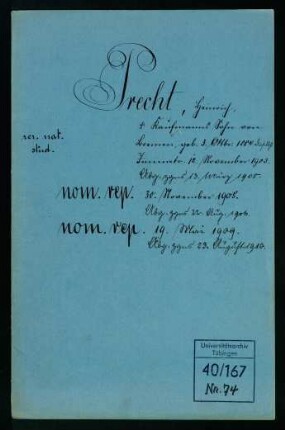 Precht, Heinrich.
rer. nat.
stud.
† Kaufmanns Sohn von
Bremen, geb. 3. Oktbr. 1884
Immatr. 12. November 1903.
Abg. zgns. 13. März 1905.
nom. rep. 30. November 1908.
Abg. zgns. Aug. 1909
nom. rep. 19. Mai 1909.
Abg. zgns. 23. August 1910.
Universitätsarchiv
Tübingen
40/167
Nr. 74